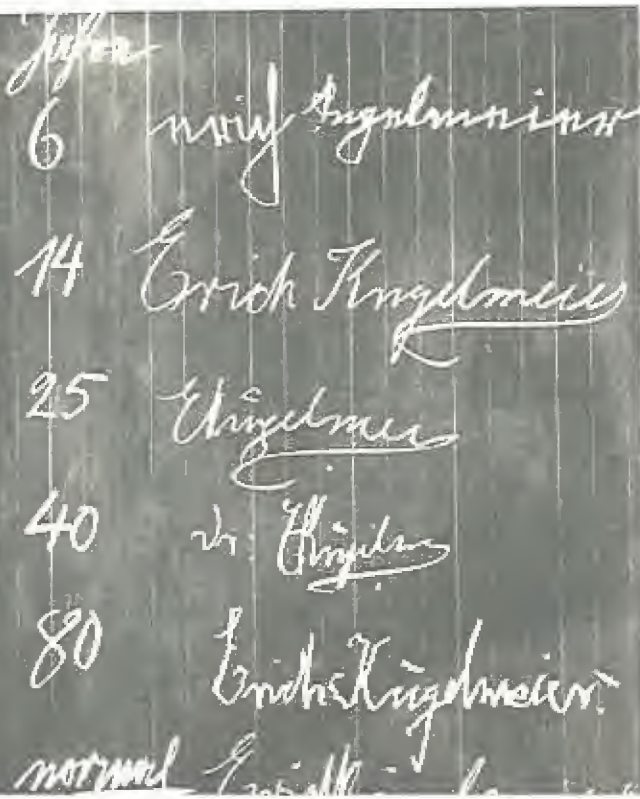 Jahre
6 erich Kugelmeier
14 Erich Kugelmeier
25 EKugelmei
40 Dr. EKugelm
80 Erich Kugelmeier.
normal